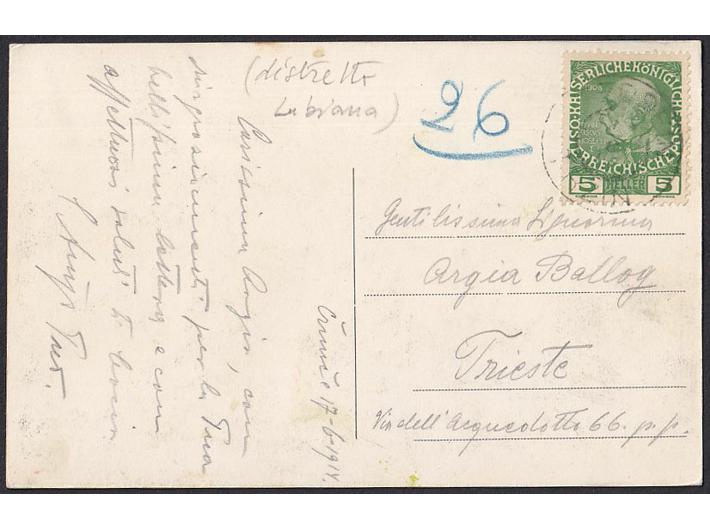 (distretto
Lubiana)
26
Črnuče 17-6-1914.
Carissima Argia, con
ringraziamenti per la Tua
bellissima lettera e con
affettuosi saluti ti bacia
Tuo.
K.K. ÖSTERREICHISCHE POST
KAISERLICHE KÖNIGLICHE
1908
5 HELLER 5
Gentilissima Signorina
Argia Ballog
Trieste
Via dell'Acquedotto 66. p.p.